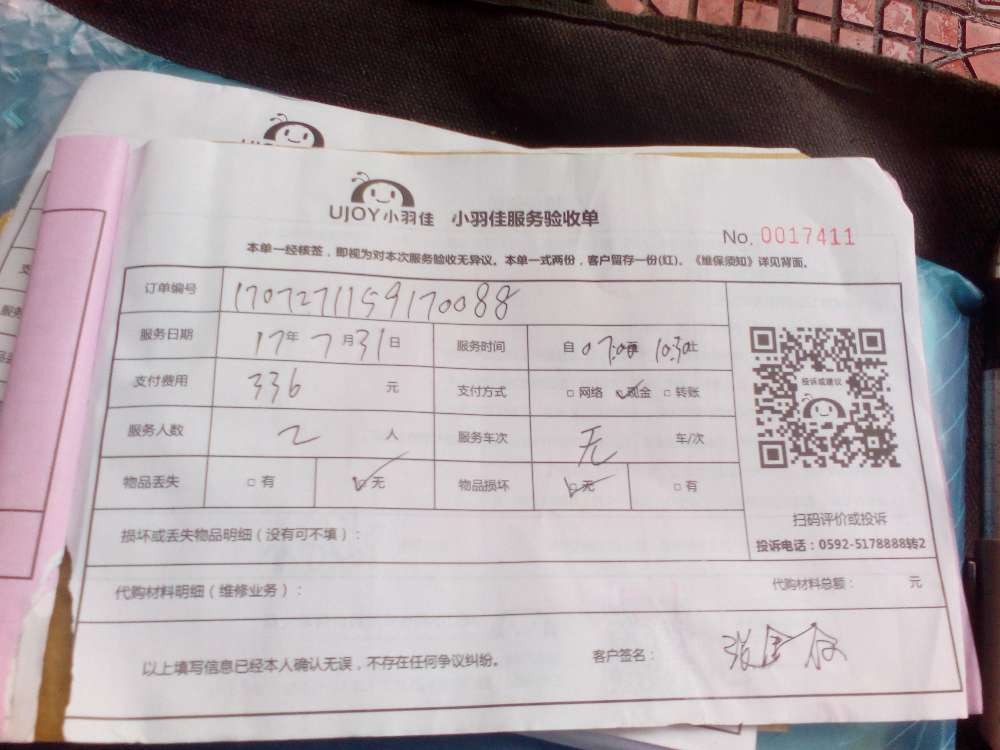 UJOY小羽佳 小羽佳服务验收单
No. 0017411
本单一经核签，即视为对本次服务验收无异议。本单一式两份，客户留存一份(红)。《维保须知》详见背面。
订单编号 1707271159170088
服务日期 17年7月31日 服务时间 自07:00至10:30止
支付费用 336 元 支付方式 □网络 ☑现金 □转账
投诉或建议
服务人数 2 人 服务车次 无 车/次
物品丢失 □有 ☑无 物品损坏 ☑无 □有
扫码评价或投诉
损坏或丢失物品明细（没有可不填）：
投诉电话：0592-5178888转2
代购材料明细（维修业务）： 代购材料总额： 元
以上填写信息已经本人确认无误，不存在任何争议纠纷。 客户签名：